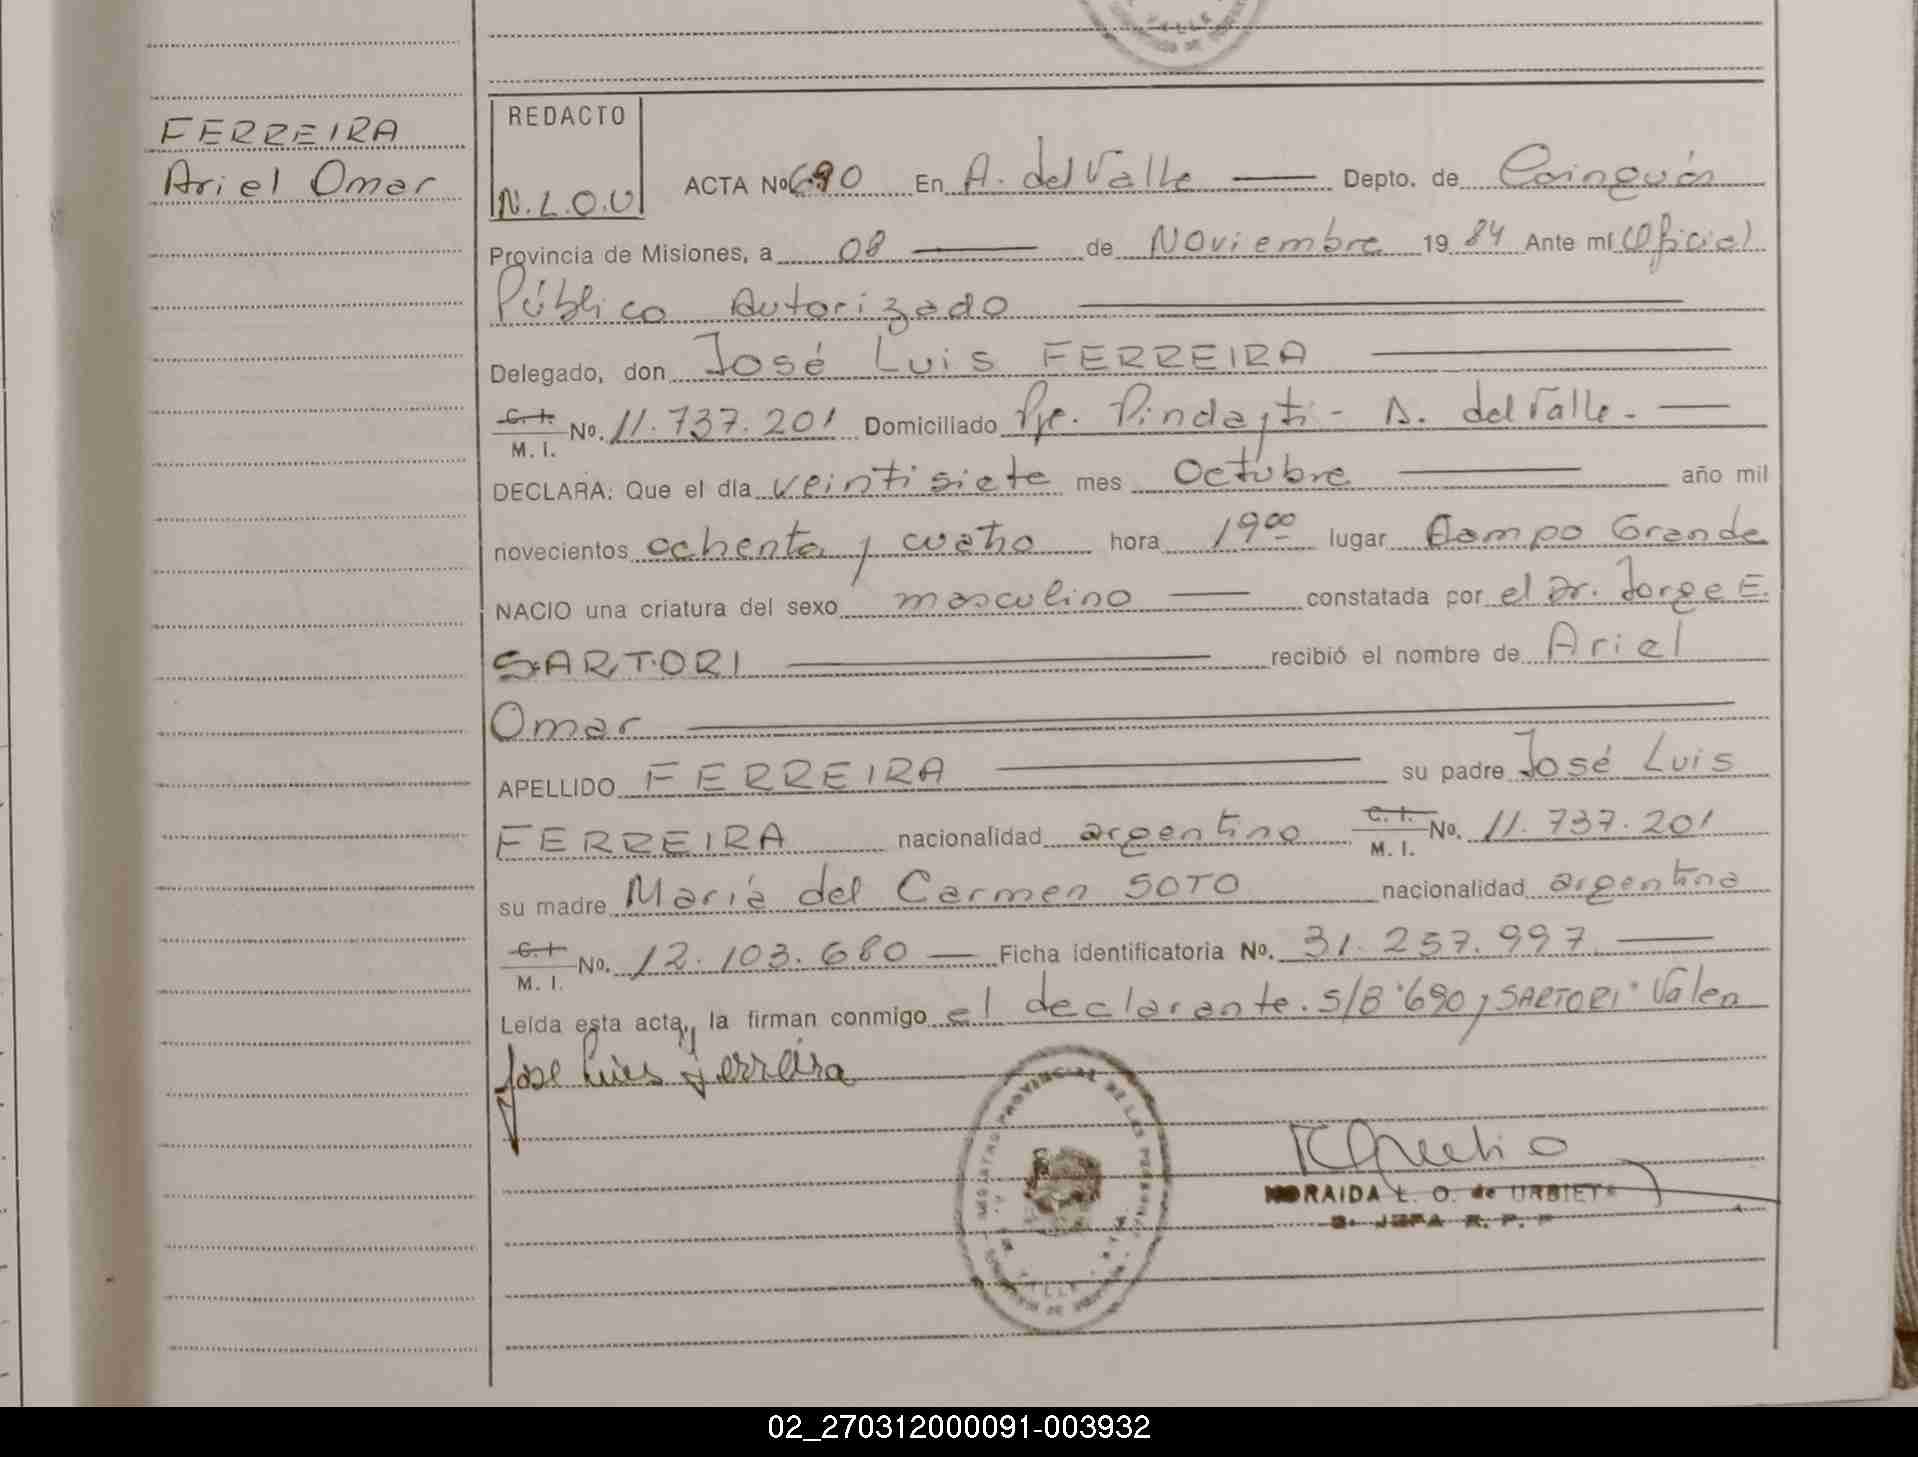 FERREIRA
Ariel Omar
REDACTO
N.L.O.U
ACTA No 690 En A. del Valle Depto. de Cainguás
Provincia de Misiones, a 08 de Noviembre 19 84 Ante mí (Oficial
Público Autorizado
Delegado, don José Luis FERREIRA
C. I. M. I. No. 11.737.201 Domiciliado Pje. Pindayti - A. del Valle -
DECLARA: Que el día veintisiete mes Octubre año mil
novecientos ochenta y cuatro hora 19⁰⁰ lugar Campo Grande
NACIO una criatura del sexo masculino constatada por el Dr. Jorge E.
SARTORI recibió el nombre de Ariel
Omar
APELLIDO FERREIRA su padre José Luis
FERREIRA nacionalidad argentino C. I. M. I. No. 11.737.201
su madre María del Carmen SOTO nacionalidad argentina
C. I. M. I. No. 12.103.680 Ficha identificatoria No. 31.257.997
Leída esta acta, la firman conmigo el declarante. S/B "690 y SARTORI" Valen
Jose Luis Ferreira
REGISTRO PROVINCIAL DE LAS PERSONAS
NORAIDA L. O. de URBIETA
JEFA R. P. P
02_270312000091-003932